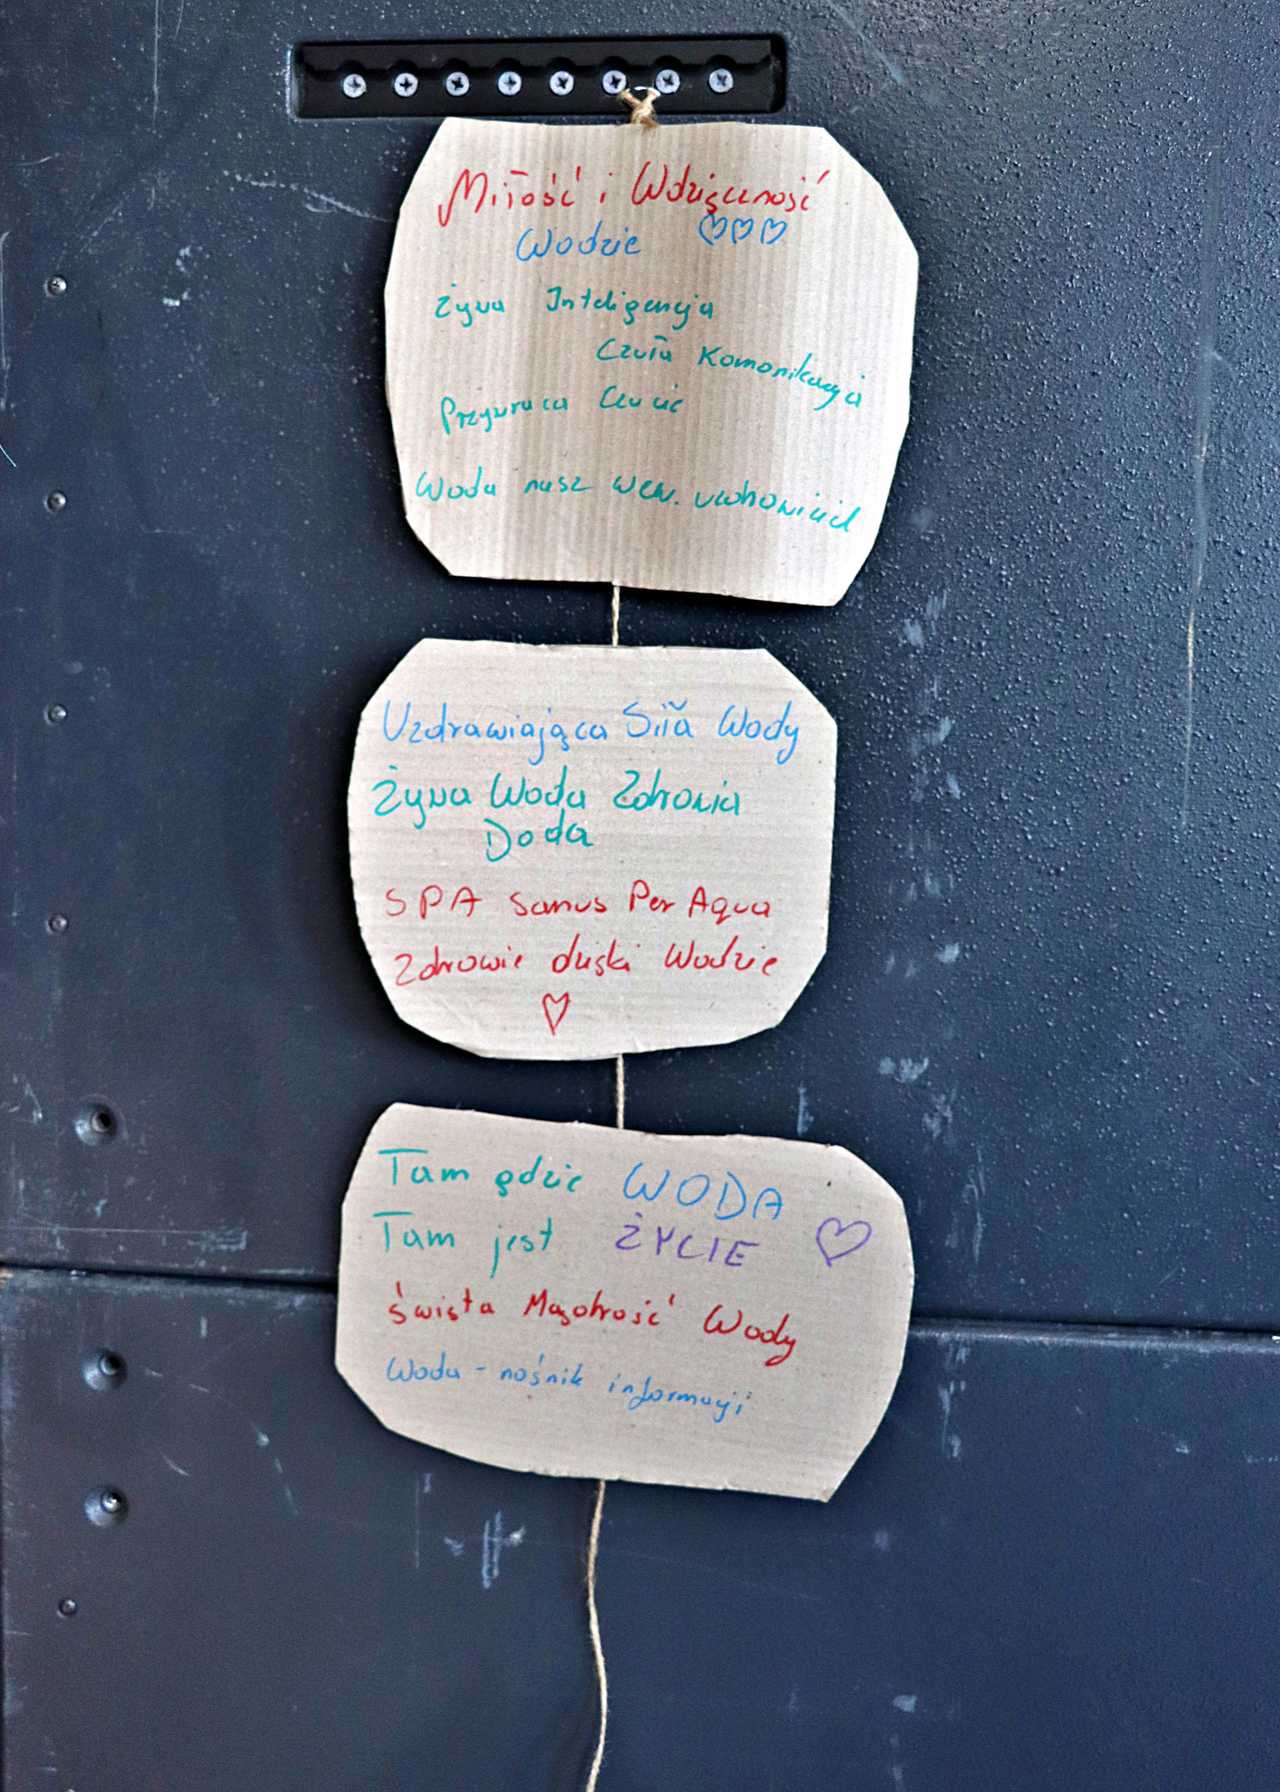 Miłość i Wdzięczność
Wodzie ♡♡♡
Żywa Inteligencja
Czuła Komonikacja
Przywraca Czucie
Woda nasz wew.
Uzdrawiająca Siła Wody
Żywa Woda Zdrowia
Doda
SPA Sanus Per Aqua
Zdrowie dzięki Wodzie
♡
Tam gdzie WODA
Tam jest ŻYCIE ♡
Święta Mądrość Wody
Woda - nośnik informacji